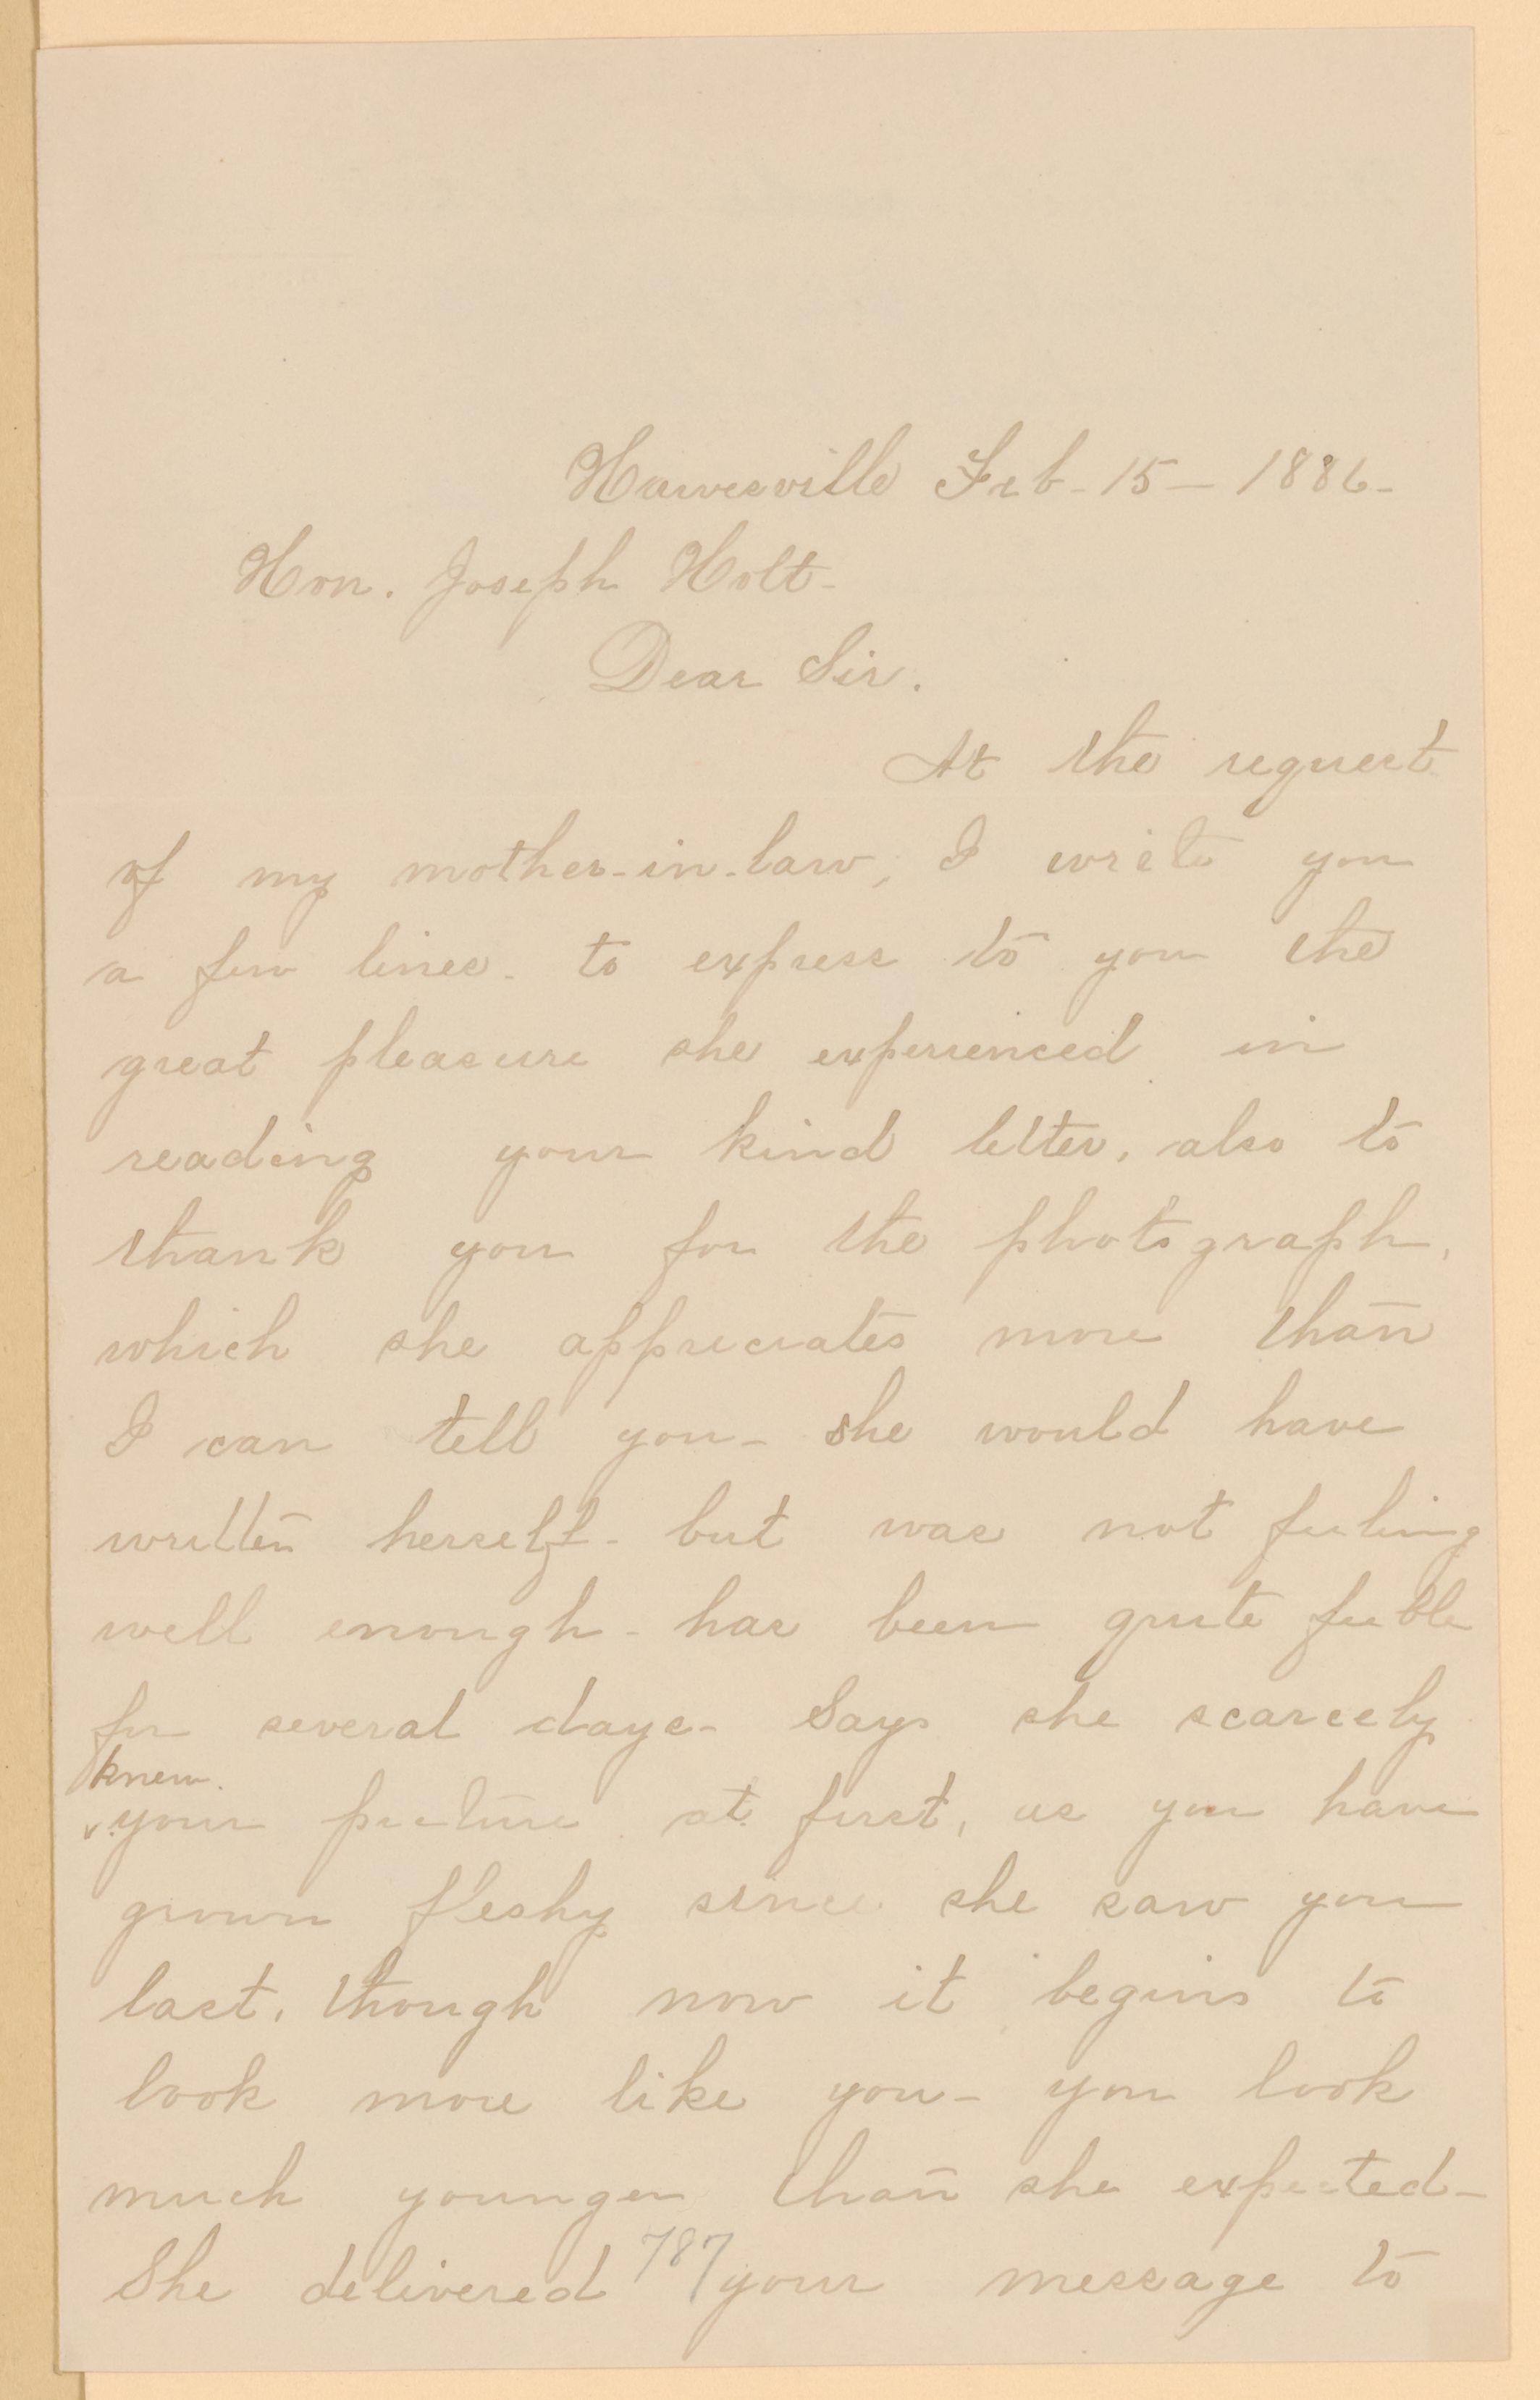 Hawesville Feb- 15- 1886-
Hon. Joseph Holt-
Dear Sir.
At the request
of my mother-in-law, I write you
a few lines- to express to you the
great pleasure she experienced in
reading your kind letter, also to
thank you for the photograph,
which she appreciates more than
I can tell you- she would have
written herself- but was not feeling
well enough- has been quite feeble
for several days- Says she scarcely
knew.
your picture at first, as you have
grown fleshy since she saw you
last, though now it begins to
look more like you- you look
much younger than she expected-
She delivered your message to
787